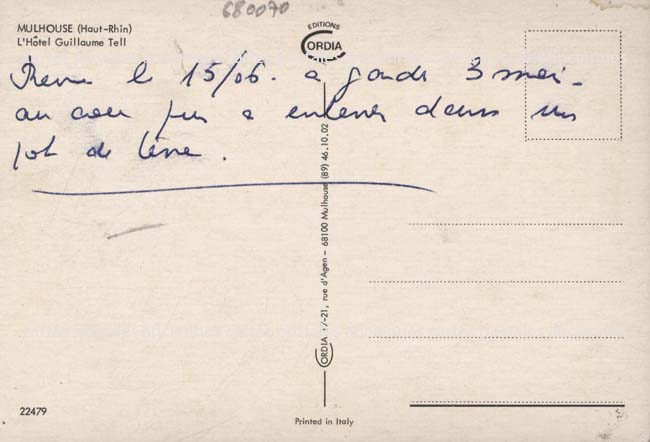 680070
MULHOUSE (Haut-Rhin)
L'Hôtel Guillaume Tell
EDITIONS
ORDIA
le 15/06. a 3
au cou a dans un
pot de terre.
ORDIA rue d'Agen – 68100 Mulhouse (89) 46.10.02
22479
Printed in Italy